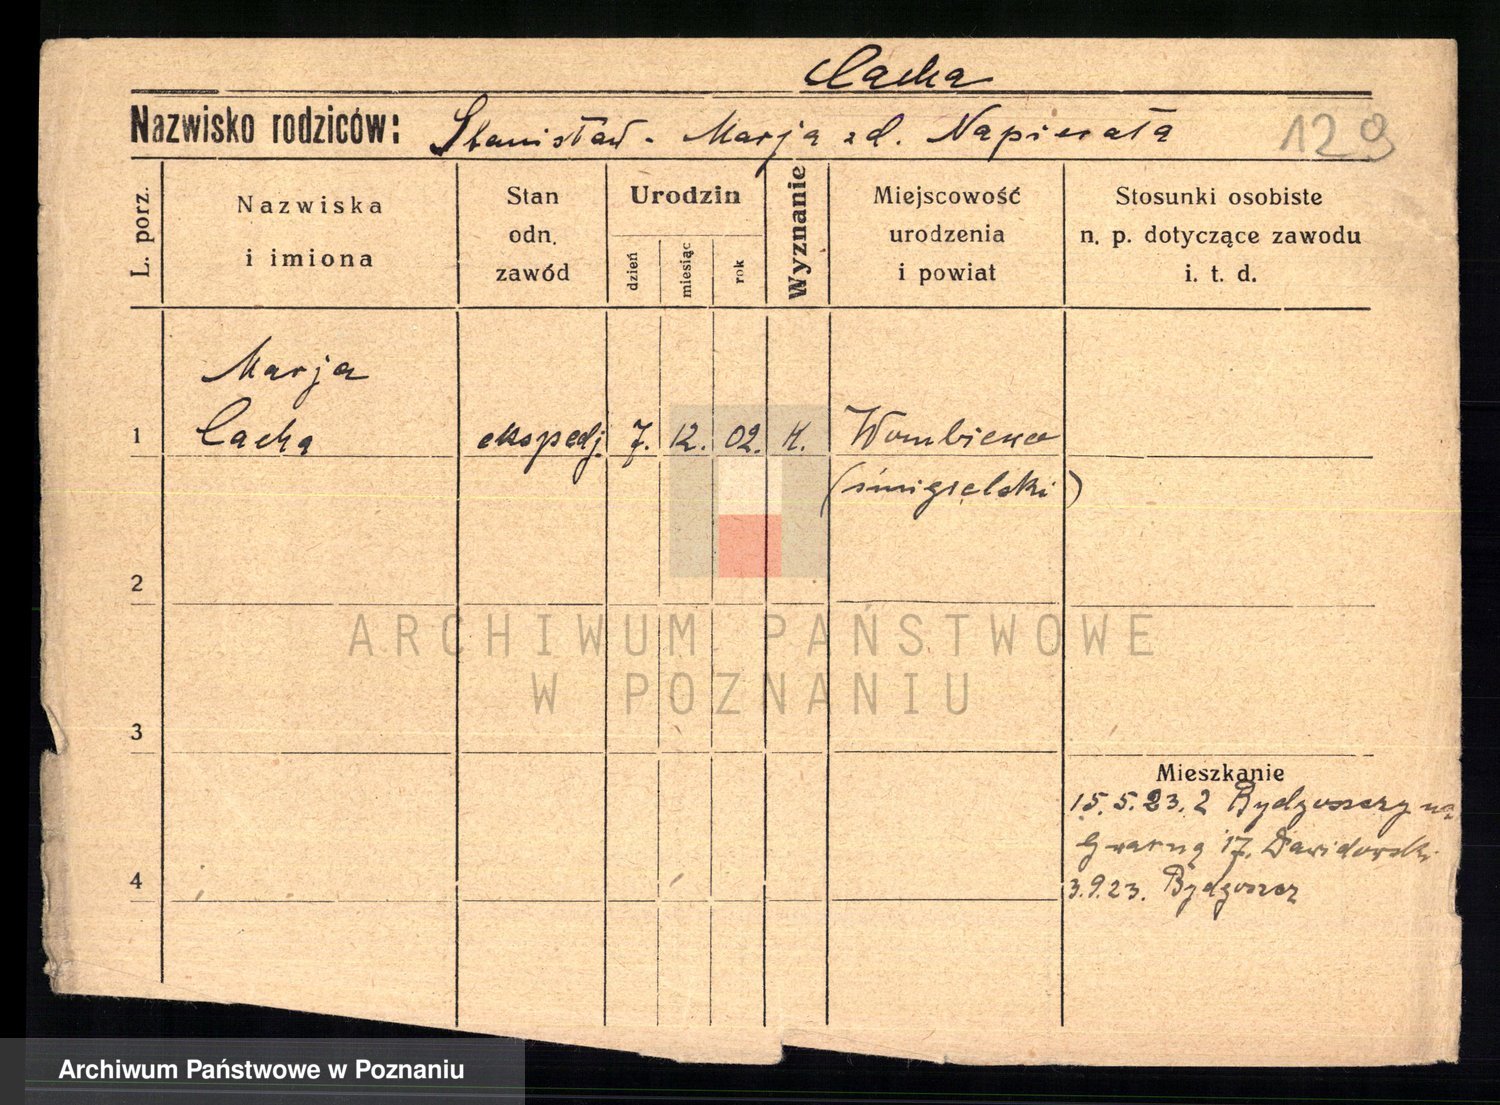 Cacha
Nazwisko rodziców: Stanisław - Marja zd. Napierała 129
L. porz.
Nazwiska
i imiona
Stan
odn.
zawód
Urodzin
dzień
miesiąc
rok
Wyznanie
Miejscowość
urodzenia
i powiat
Stosunki osobiste
n. p. dotyczące zawodu
i. t. d.
Marja
1 Cacha ekspedj. 7. 12. 02. K.
(śmigielski)
2
ARCHIWUM PAŃSTWOWE
W POZNANIU
3
Mieszkanie
15.5.23. z Bydgoszczy na
17. Dawidowski
4 3.9.23. Bydgoszcz
Archiwum Państwowe w Poznaniu